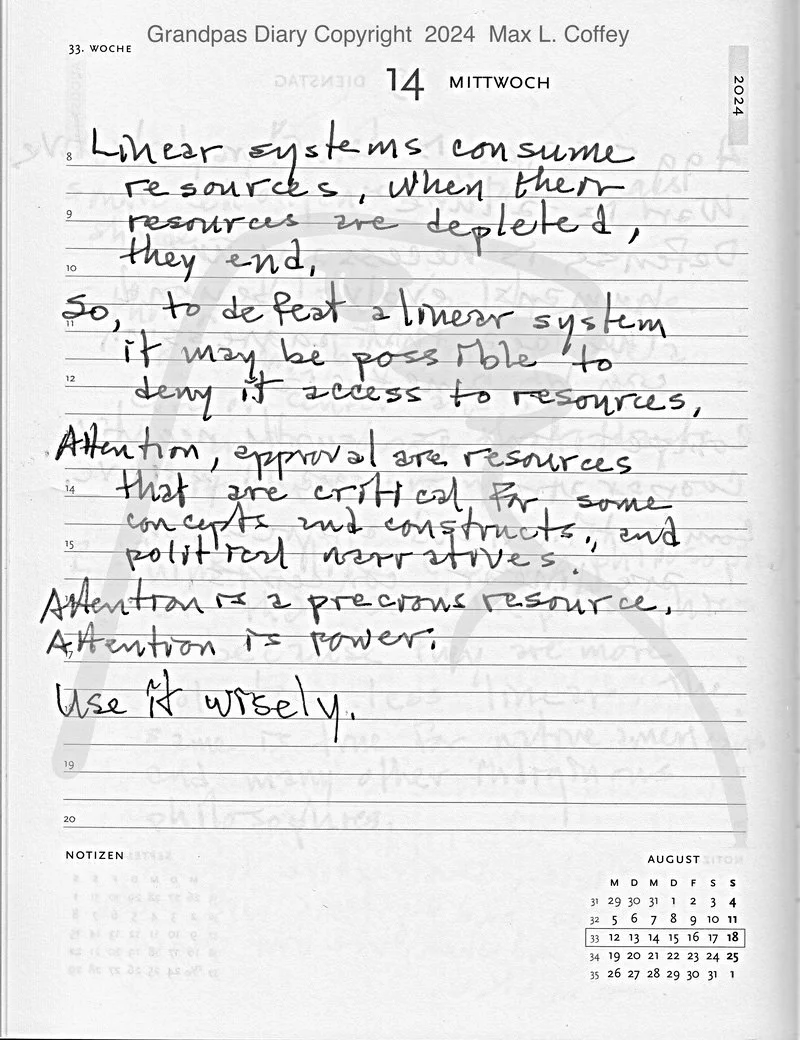 Grandpas Diary Copyright 2024 Max L. Coffey
33. WOCHE
14 MITTWOCH
2024
8 Linear systems consume
resources, when their
9 resources are depleted,
they end.
10
So, to defeat a linear system
11
it may be possible to
12
deny it access to resources,
Attention, approval are resources
14 that are critical for some
concepts and constructs, and
15 political narratives.
Attention is a precious resource.
Attention is power.
17
Use it wisely.
19
20
NOTIZEN
AUGUST
M D M D F S S
31 29 30 31 1 2 3 4
32 5 6 7 8 9 10 11
33 12 13 14 15 16 17 18
34 19 20 21 22 23 24 25
35 26 27 28 29 30 31 1